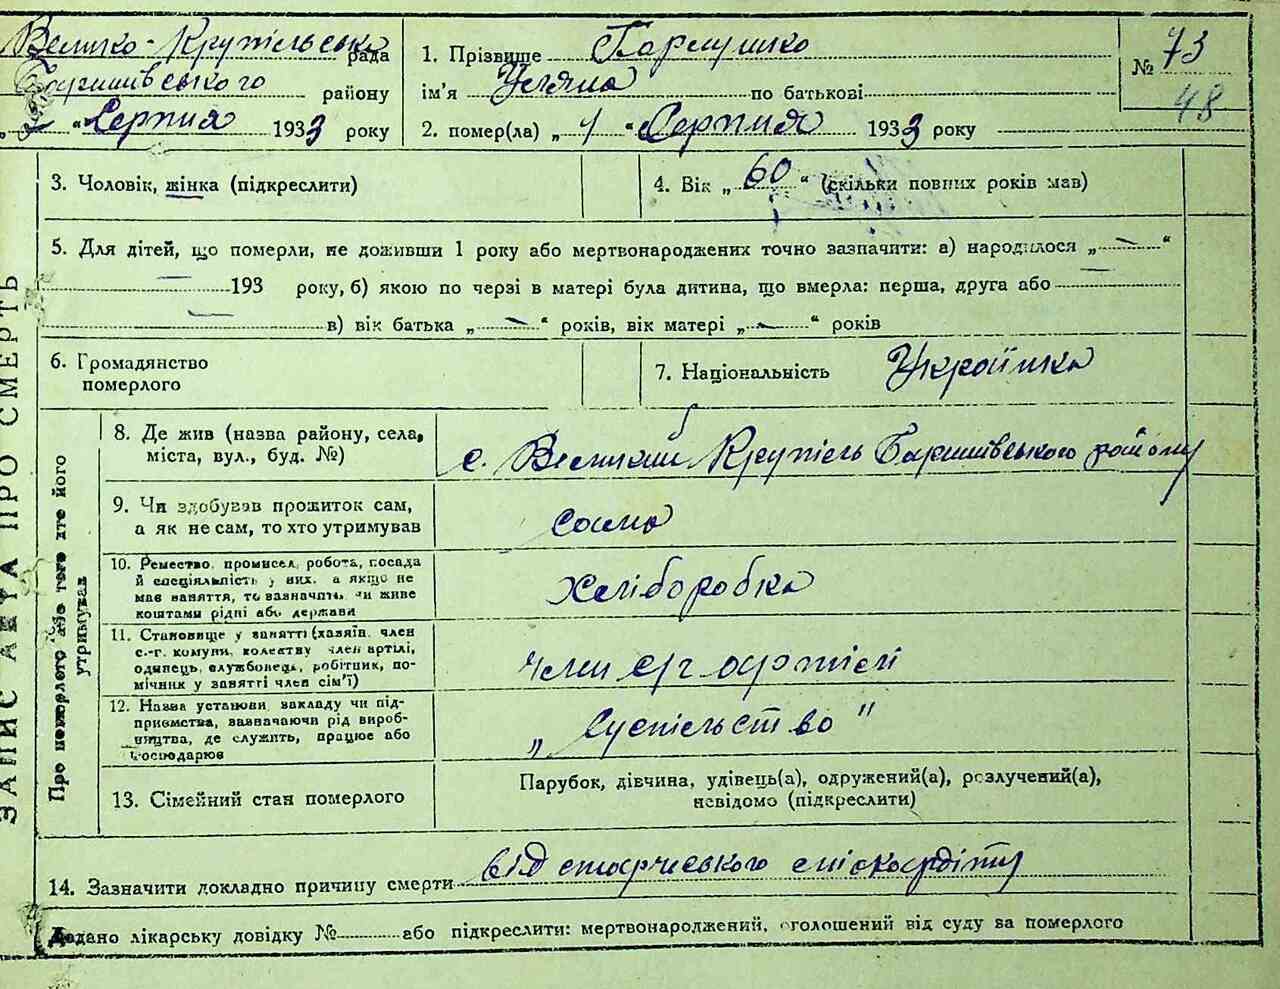 Велико-Крупільська рада
Баришівського району
"Серпня 1933 року
1. Прізвище Бармушко
ім'я Уляна по батькові
2. помер(ла) „ 1 “ Серпня 1933 року
№ 73
48
3. Чоловік, жінка (підкреслити)
4. Вік „ 60 “ (скільки повних років мав)
5. Для дітей, що померли, не доживши 1 року або мертвонароджених точно зазначити: а) народилося „ — “
— 193 року, б) якою по черзі в матері була дитина, що вмерла: перша, друга або —
— в) вік батька „ — “ років, вік матері „ — “ років
6. Громадянство
померлого
7. Національність Українка
ЗАПИС АКТА ПРО СМЕРТЬ
Про померлого або того хто його
утримував
8. Де жив (назва району, села,
міста, вул., буд. №)
с. Великий Крупіль Баришівського району
9. Чи здобував прожиток сам,
а як не сам, то хто утримував
сама
10. Ремество, промисел, робота, посада
й спеціяльність у них, а якщо не
мав заняття, то зазначить, чи живе
коштами рідні або держави
хліборобка
11. Становище у занятті (хазяїн, член
с.-г. комуни, колективу член артілі,
одинець, службовець, робітник, по-
мічник у занятті член сім'ї)
член с/г артілі
12. Назва установи, закладу чи під-
приємства, зазначаючи рід вироб-
ництва, де служить, працює або
господарює
„ Суспільство "
13. Сімейний стан померлого
Парубок, дівчина, удівець(а), одружений(а), розлучений(а),
невідомо (підкреслити)
14. Зазначити докладно причину смерти від старчевського міокардіту
Додано лікарську довідку № або підкреслити: мертвонароджений, оголошений від суду за померлого